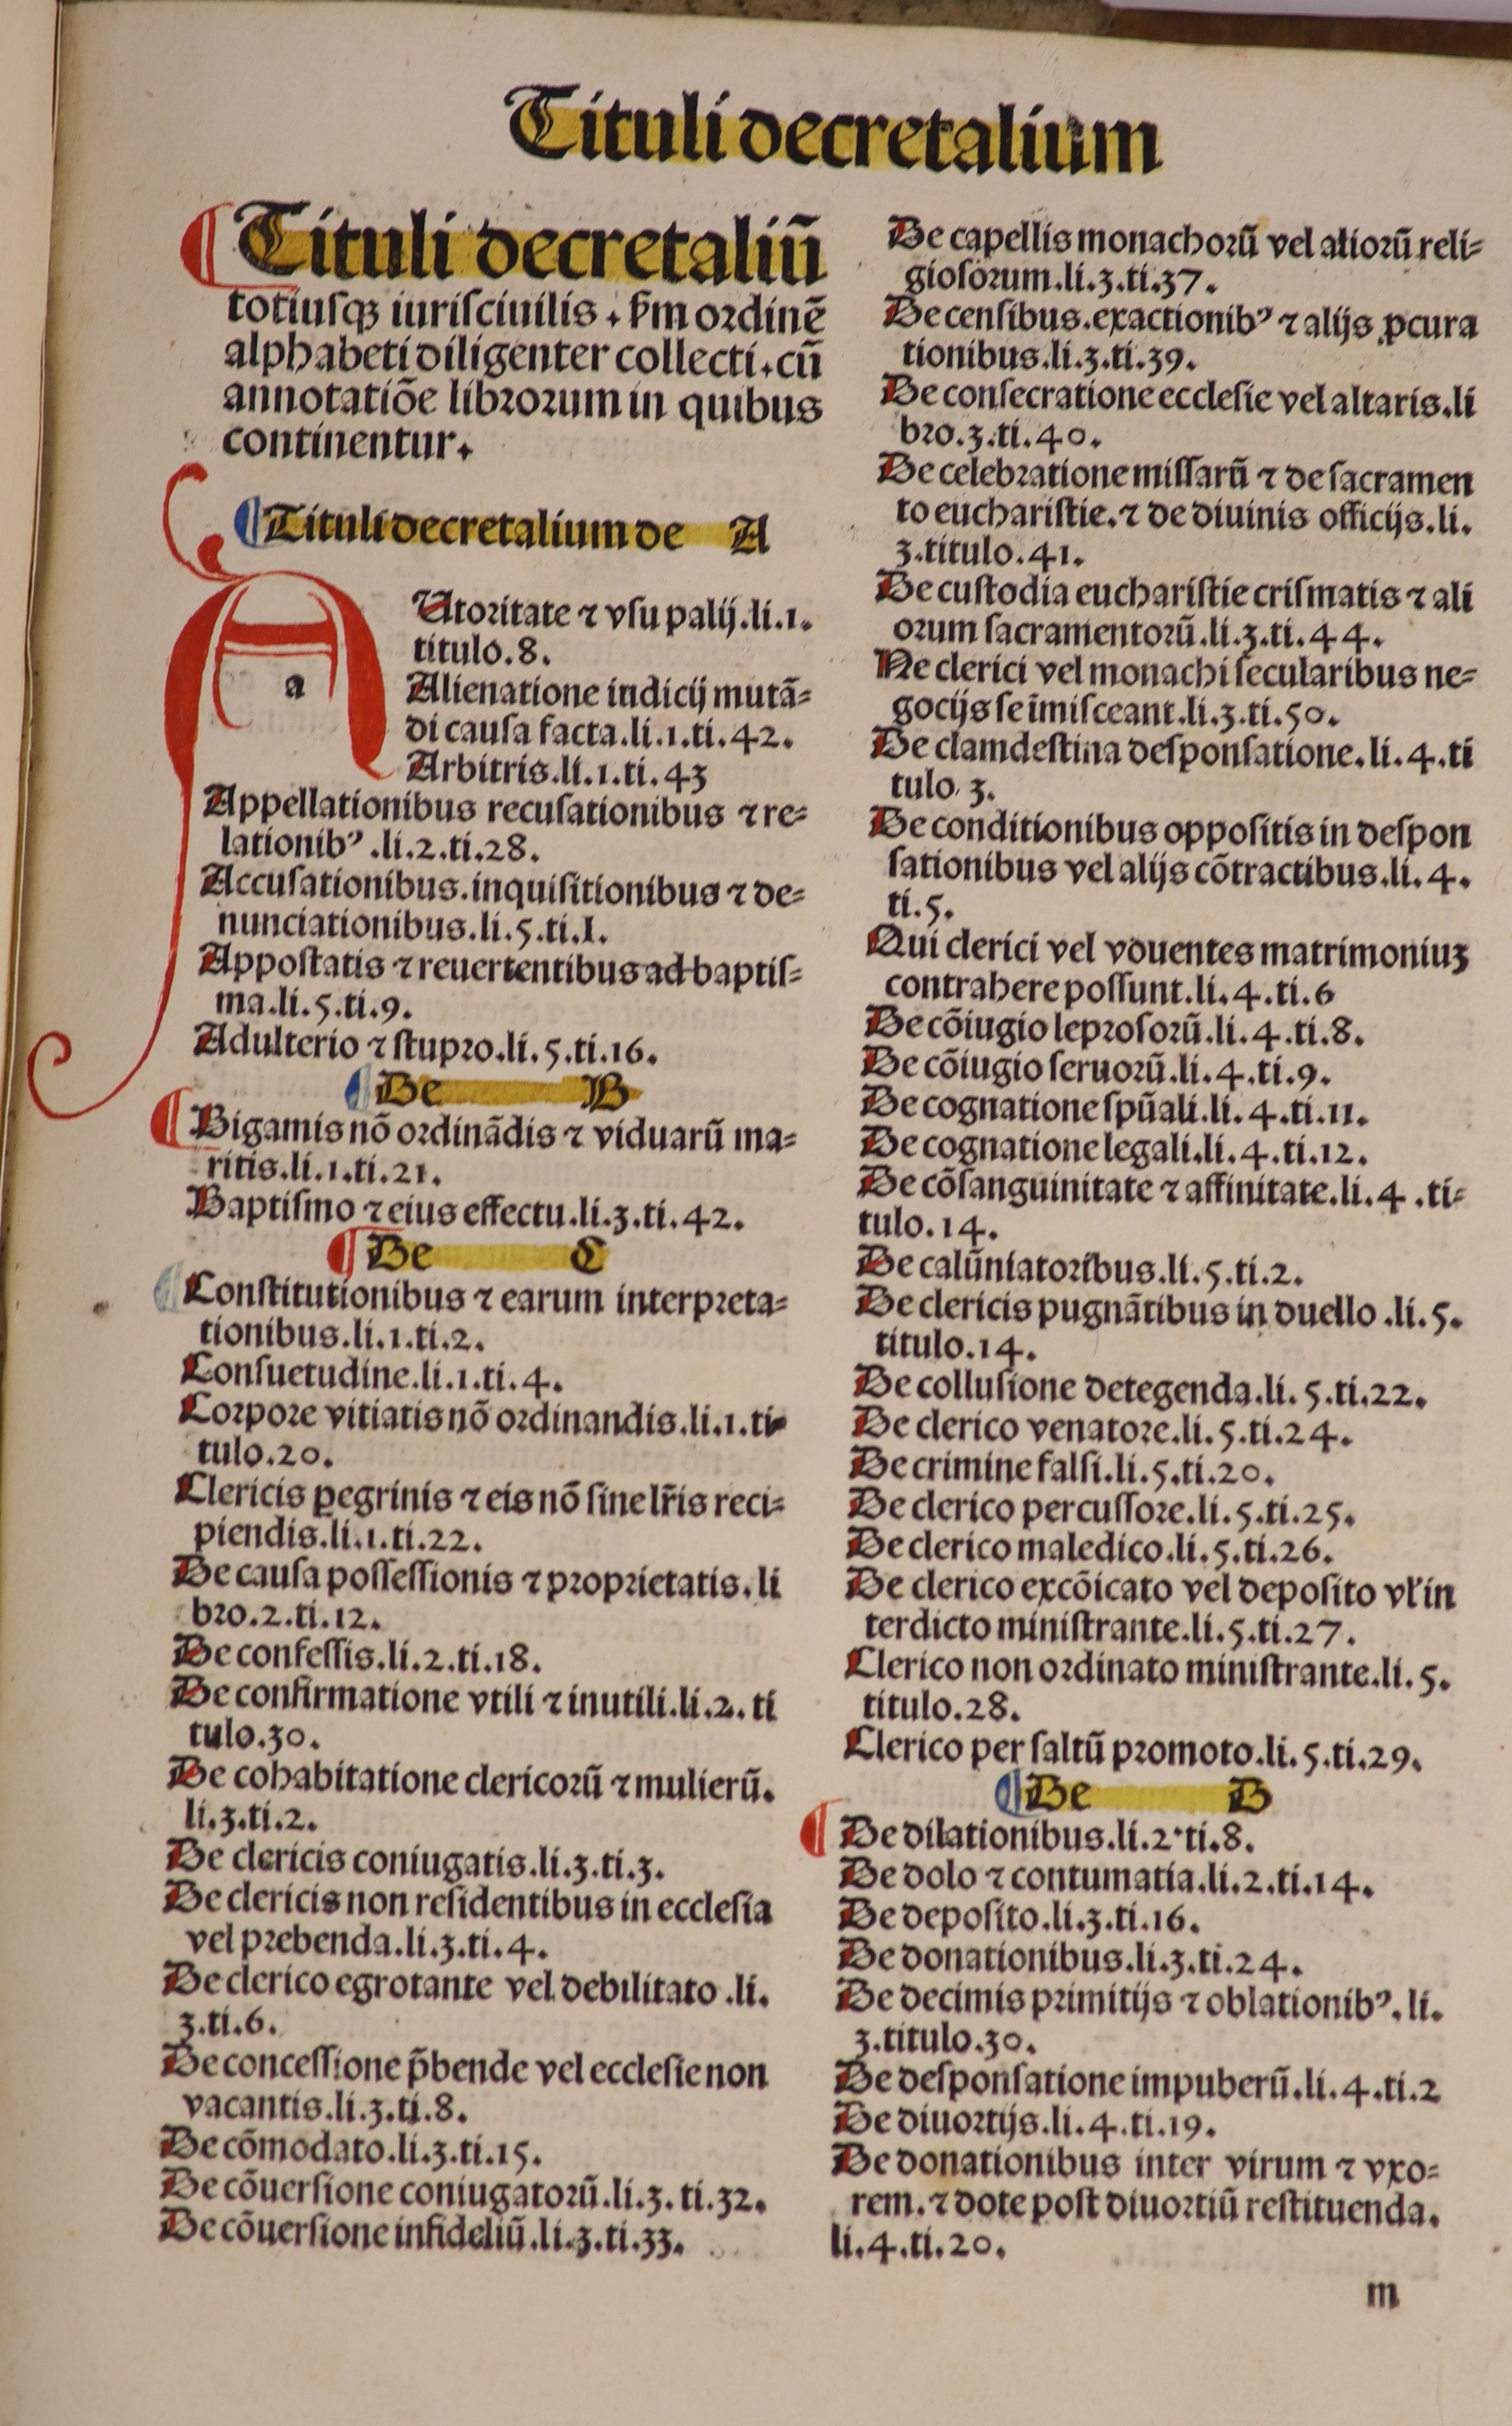 Tituli decretalium
Tituli decretaliū
totiusqꝫ iuriſciuilis . ẜm ordinē
alphabeti diligenter collecti. cū
annotatiōe librorum in quibus
continentur.
Tituli decretalium de A
a
Utoritate ⁊ vſu palij.li.1.
titulo.8.
Alienatione iudicij mutā⸗
di cauſa facta.li.1.ti.42.
Arbitris.li.1.ti.43
Appellationibus recuſationibus ⁊ re⸗
lationibꝰ .li.2.ti.28.
Accuſationibus.inquiſitionibus ⁊ de⸗
nunciationibus.li.5.ti.I.
Appoſtatis ⁊ reuertentibus ad baptiſ⸗
ma.li.5.ti.9.
Adulterio ⁊ ſtupro.li.5.ti.16.
De B
Bigamis nō ordinādis ⁊ viduarū ma⸗
ritis.li.1.ti.21.
Baptiſmo ⁊ eius effectu.li.3.ti.42.
De C
Conſtitutionibus ⁊ earum interpreta⸗
tionibus.li.1.ti.2.
Conſuetudine.li.1.ti.4.
Corpore vitiatis nō ordinandis.li.1.ti⸗
tulo.20.
Clericis ꝑegrinis ⁊ eis nō ſine lr̄is reci⸗
piendis.li.1.ti.22.
De cauſa poſſeſſionis ⁊ proprietatis.li
bro.2.ti.12.
De confeſſis.li.2.ti.18.
De confirmatione vtili ⁊ inutili.li.2.ti
tulo.30.
De cohabitatione clericorū ⁊ mulierū.
li.3.ti.2.
De clericis coniugatis.li.3.ti.3.
De clericis non reſidentibus in eccleſia
vel prebenda.li.3.ti.4.
De clerico egrotante vel debilitato .li.
3.ti.6.
De conceſſione p̄bende vel eccleſie non
vacantis.li.3.ti.8.
De cōmodato.li.3.ti.15.
De cōuerſione coniugatorū.li.3.ti.32.
De cōuerſione infideliū.li.3.ti.33.
De capellis monachorū vel aliorū reli⸗
gioſorum.li.3.ti.37.
De cenſibus.exactionibꝰ ⁊ alijs ꝓcura
tionibus.li.3.ti.39.
De conſecratione eccleſie vel altaris.li
bro.3.ti.40.
De celebratione miſſarū ⁊ de ſacramen
to euchariſtie.⁊ de diuinis officijs.li.
3.titulo.41.
De cuſtodia euchariſtie criſmatis ⁊ ali
orum ſacramentorū.li.3.ti.44.
Ne clerici vel monachi ſecularibus ne⸗
gocijs ſe īmiſceant.li.3.ti.50.
De clamdeſtina deſponſatione.li.4.ti
tulo.3.
De conditionibus oppoſitis in deſpon
ſationibus vel alijs cōtractibus.li.4.
ti.5.
Qui clerici vel vouentes matrimoniuꝫ
contrahere poſſunt.li.4.ti.6
De cōiugio leproſorū.li.4.ti.8.
De cōiugio ſeruorū.li.4.ti.9.
De cognatione ſpūali.li.4.ti.11.
De cognatione legali.li.4.ti.12.
De cōſanguinitate ⁊ affinitate.li.4 .ti⸗
tulo.14.
De calūniatoribus.li.5.ti.2.
De clericis pugnātibus in duello .li.5.
titulo.14.
De colluſione detegenda.li.5.ti.22.
De clerico venatore.li.5.ti.24.
De crimine falſi.li.5.ti.20.
De clerico percuſſore.li.5.ti.25.
De clerico maledico.li.5.ti.26.
De clerico excōicato vel depoſito vl̓ in
terdicto miniſtrante.li.5.ti.27.
Clerico non ordinato miniſtrante.li.5.
titulo.28.
Clerico per ſaltū promoto.li.5.ti.29.
De D
De dilationibus.li.2.ti.8.
De dolo ⁊ contumatia.li.2.ti.14.
De depoſito.li.3.ti.16.
De donationibus.li.3.ti.24.
De decimis primitijs ⁊ oblationibꝰ.li.
3.titulo.30.
De deſponſatione impuberū.li.4.ti.2
De diuortijs.li.4.ti.19.
De donationibus inter virum ⁊ vxo⸗
rem.⁊ dote poſt diuortiū reſtituenda.
li.4.ti.20.
m